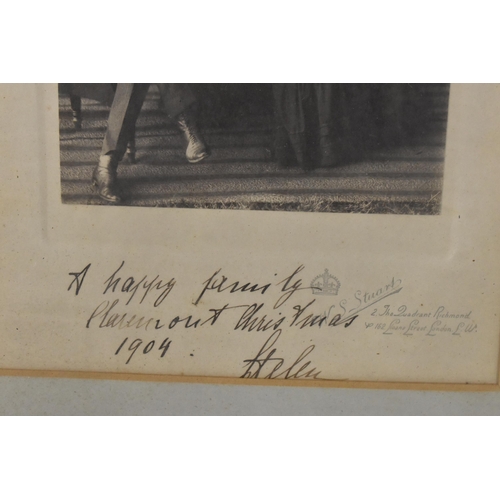 A happy family
Claremont Christmas
1904.
Helen
S. Stuart
2. The Quadrant Richmond